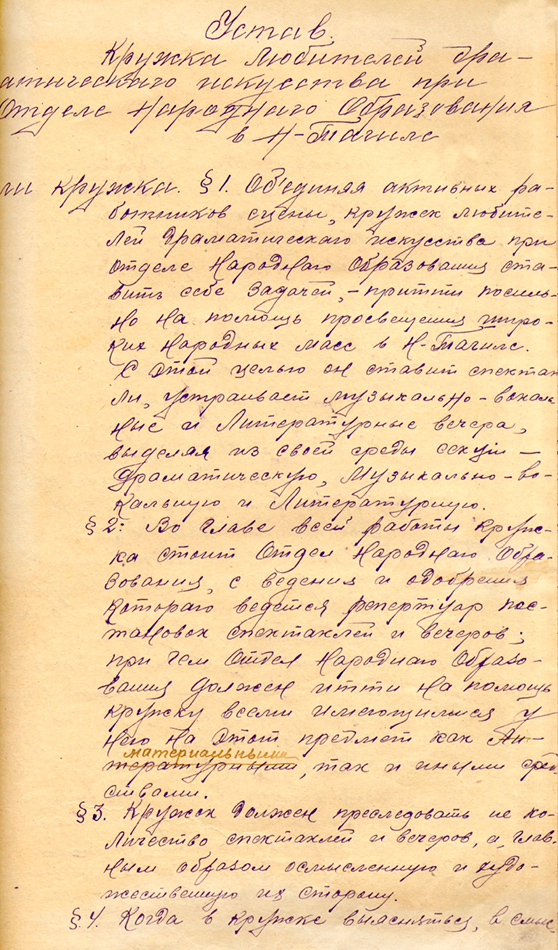 Устав.
Кружка Любителей дра-
атическаго искусства при
Отделе Народнаго Образования
в Н-Тагиле
ли кружка. § 1. Объединяя активных ра-
ботников сцены, кружек любите-
лей драматическаго искусства при
отделе Народнаго Образования ста-
вит себе задачей, - притти посиль-
но на помощь просвещения широ-
ких народных масс в Н-Тагиле.
С этой целью он ставит спектак
ли, устраивает музыкально-вокаль
ные и Литературные вечера,
выделяя из своей среды секции —
драматическую, Музыкально-во-
кальную и Литературную.
§ 2: Во главе всей работы круж-
ка стоит Отдел Народнаго Обра-
зования, с ведения и одобрения
котораго ведется репертуар пос-
тановок спектаклей и вечеров;
при чем Отдел Народнаго Образо-
вания должен итти на помощь
кружку всеми имеющимися у
него на этот предмет как Ли-
материальными
тературными, так и иными сред
ствами.
§ 3. Кружок должен преследовать не ко-
личество спектаклей и вечеров, а глав.
ным образом осмысленную и худо-
жественную их сторону.
§ 4. Когда в кружке выяснится, в смыс